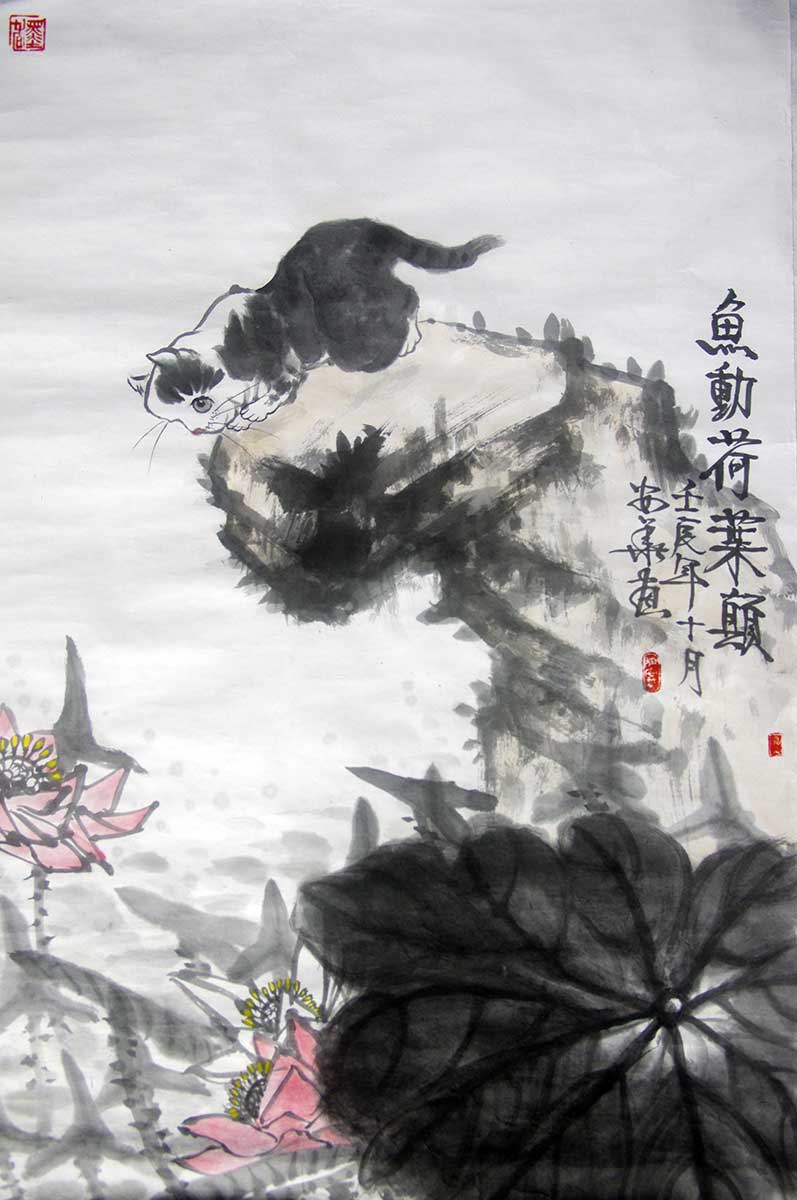 魚動荷葉顛
壬辰年十月
安華畫